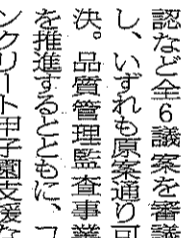 認など全6議案を審議
し、いずれも原案通り可
決。品質管理監査事業
を推進するとともに、コ
ンクリート甲子園支援な